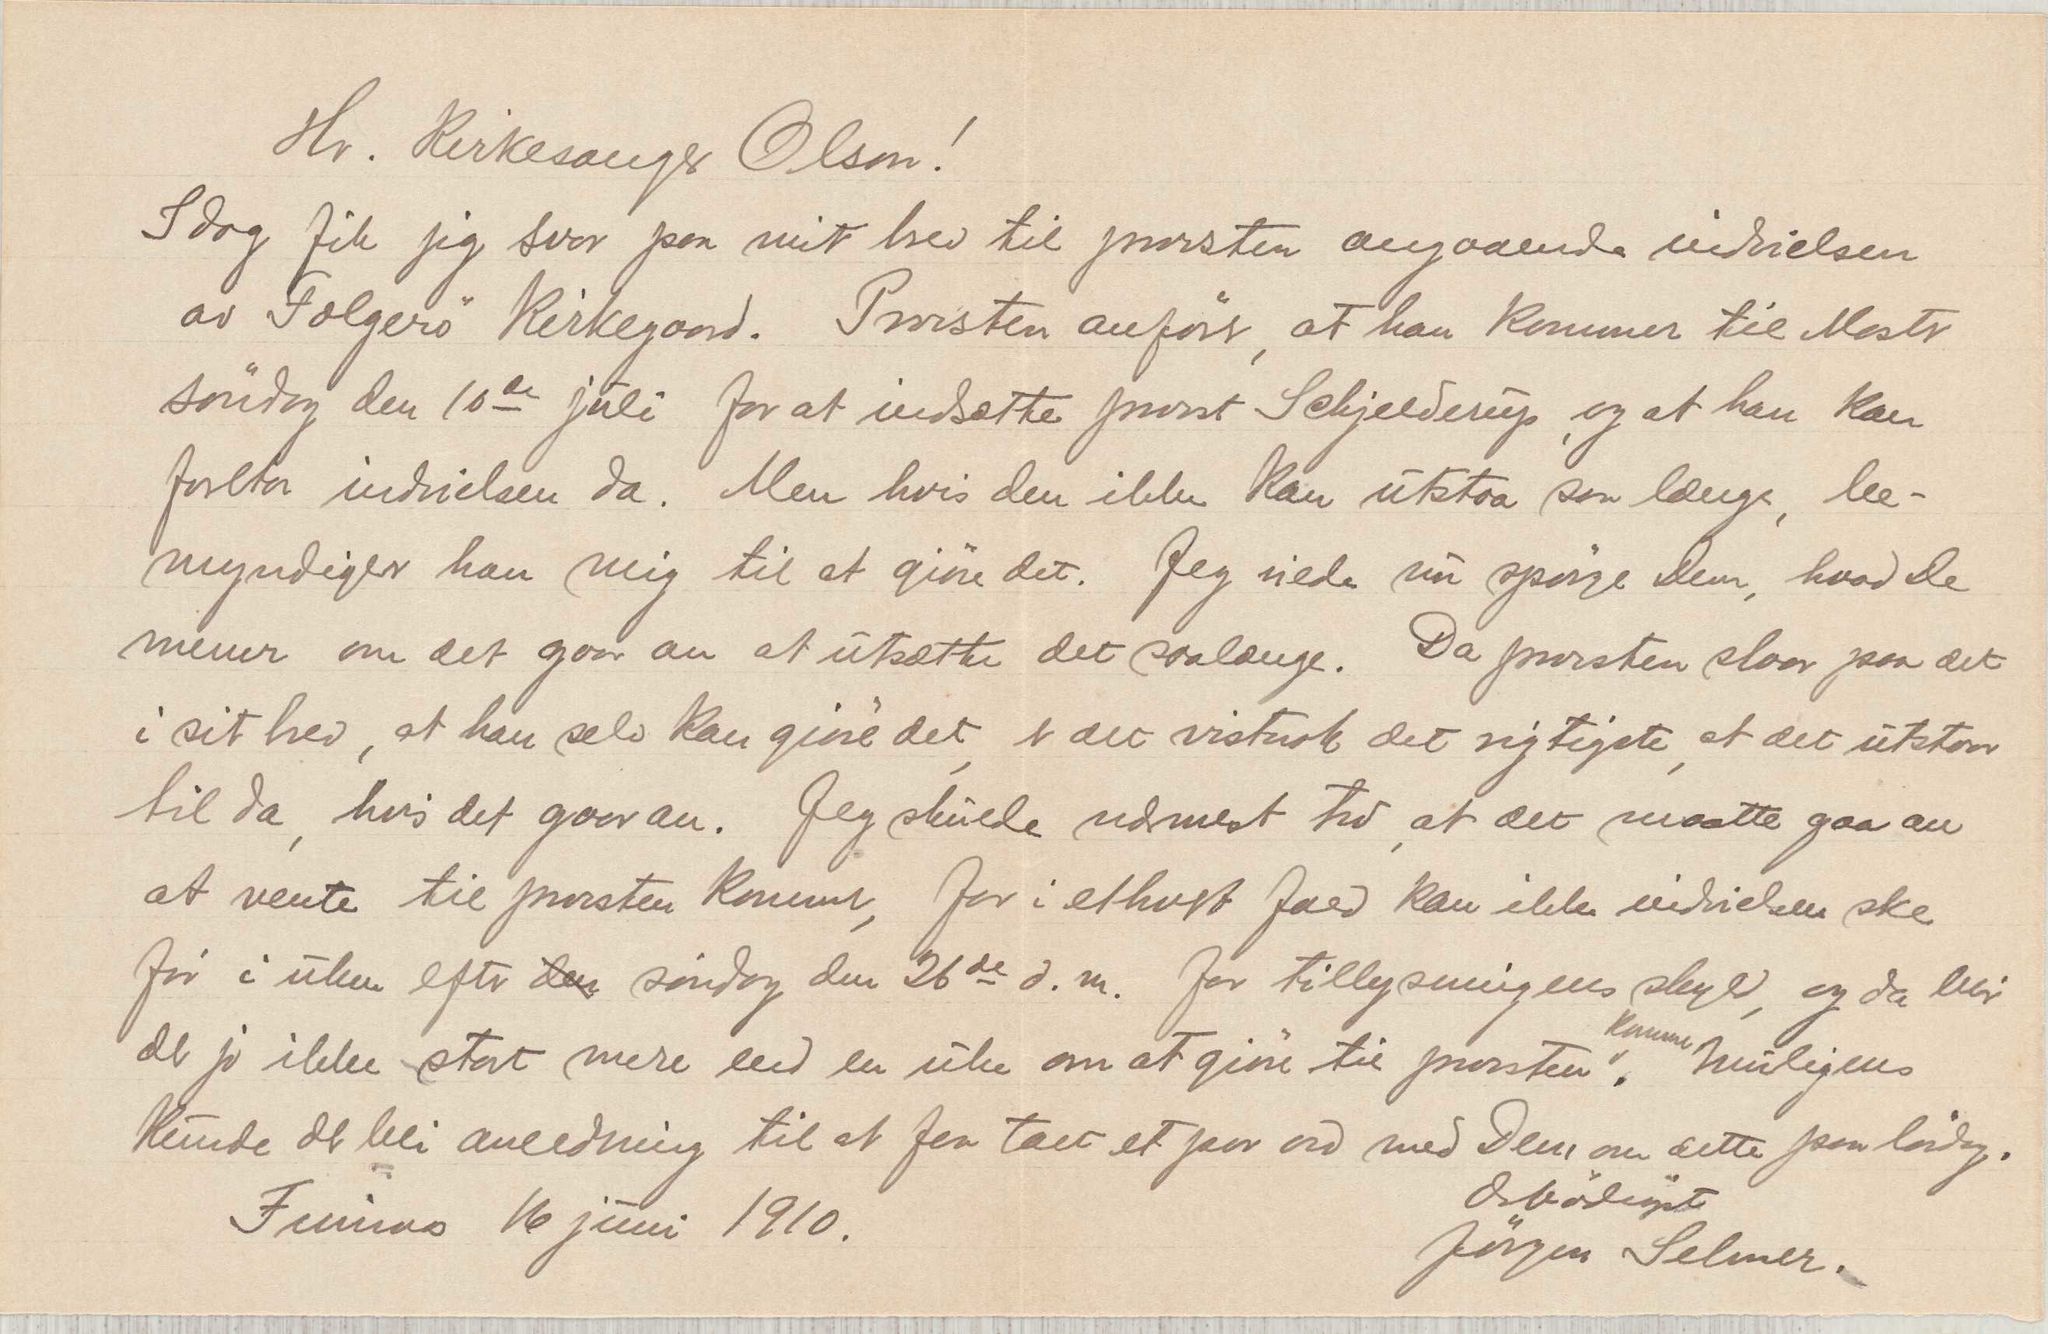 Hr. Kirkesanger Olson!
Idag fik jeg svar paa mit brev til provsten angaaende indvielsen
av Folgerö Kirkegaard. Provsten anförer, at han kommer til Moster
söndag den 10de juli for at indsætte provst Schjelderup, og at han kan
foreta indvielsen da. Men hvis den ikke kan utstaa saa længe, be-
myndiger han mig til at gjöre det. Jeg vilde nu spörge Dem, hvad De
mener om det gaar an at utsætte det saalænge. Da provsten slaar paa det
i sit brev, at han selv kan gjöre det, er det vistnok det rigtigste, at det utstaar
til da, hvis det gaar an. Jeg skulde nærmest tro, at det maatte gaa an
at vente til provsten kommer, for i ethvert fald kan ikke indvielsen ske
för i uken efter den söndag den 26de d.m. for tillysningens skyld, og da blir
der jo ikke stort mere end en uke om at gjöre til provsten kommer. Muligens
kunde der bli anledning til at faa talt et par ord med Dem om dette paa lördag.
Finnaas 16 juni 1910.
Ærbödigst
Jörgen Selmer.